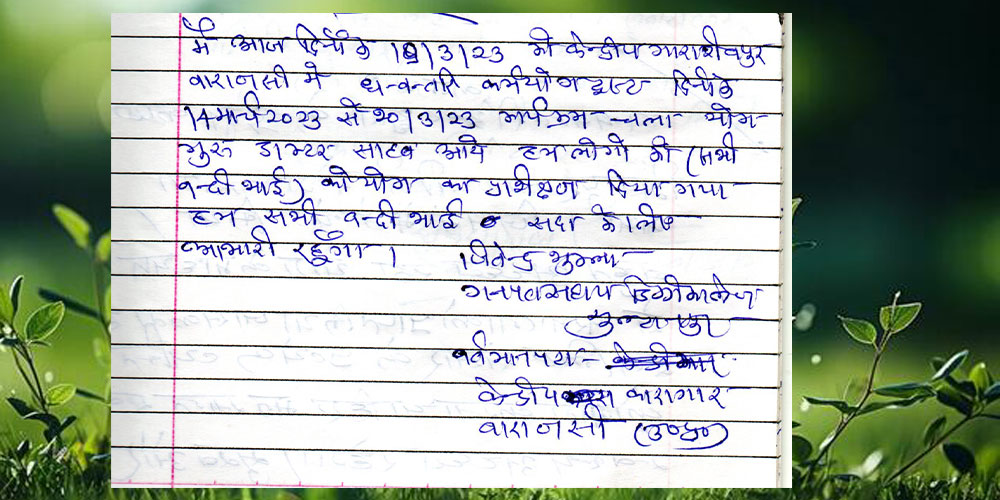 मैं आज दिनाँक 19/3/23 को केन्द्रीय कारा शिवपुर
वाराणसी में धन्वन्तरि कर्मयोग ट्रस्ट दिनाँक
14 मार्च 2023 से 20/3/23 कार्यक्रम चला योग
गुरु डाक्टर साहब आये हम लोगो को (सभी
वन्दी भाई) को योग का प्रशिक्षण दिया गया
हम सभी वन्दी भाई सदा के लिए
आभारी रहूँगा।
जितेन्द्र शुक्ला
गनपत सहाय डिग्री कालेज
वर्तमान पता -
केन्द्रीय कारागार
वाराणसी (उ०प्र०)